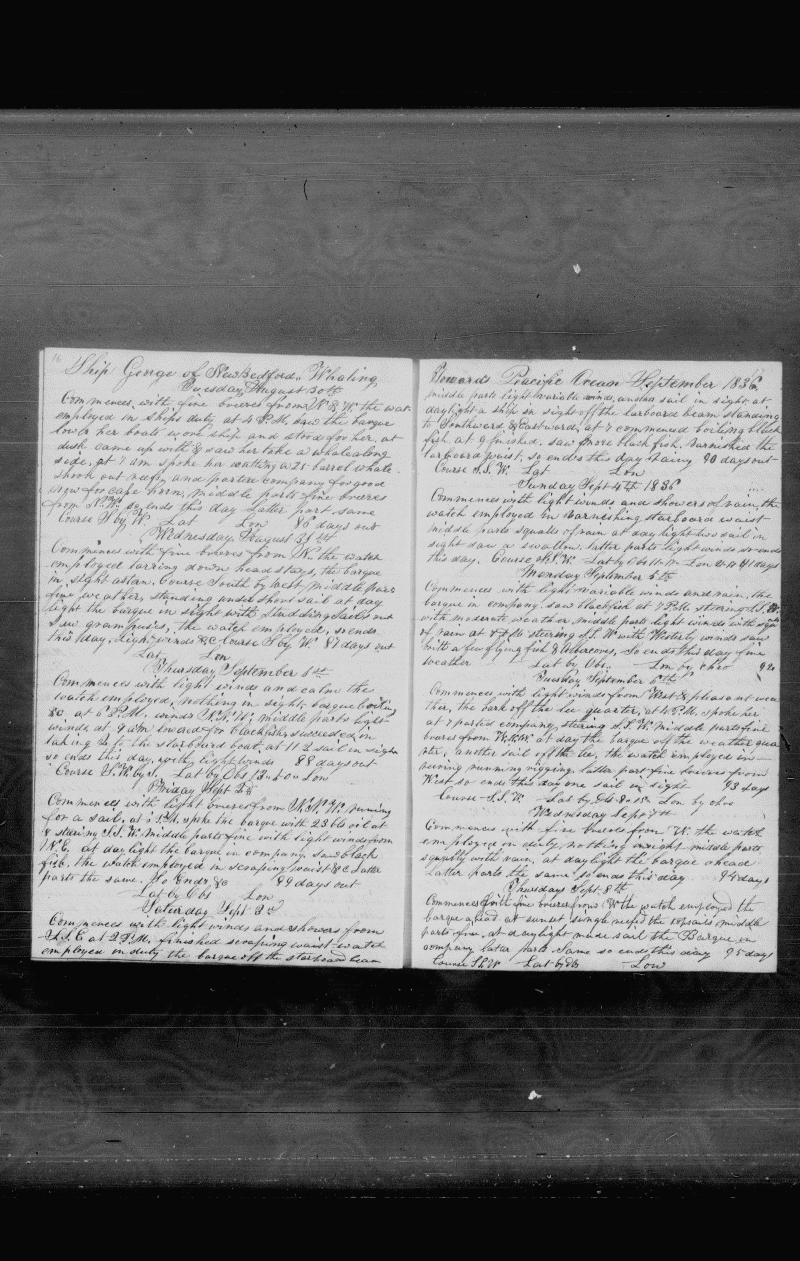 16
Ship George of New Bedford Whaling
Tuesday August 30th
Commences with fine breezes from N & W the wat
employed in ships duty at 4 P.M. saw the barque
lower her boats & one ship and stood for her, at
dusk came up with & saw her take a whale along
side. at 7 am spoke her waiting a 25 barrel whale.
shook out reefs and parted company for good
now for cape horn, middle parts fine breezes
from N.W. so ends this day Latter part same
Course S by W Lat Lon 86 days out
Wednesday August 31st
Commences with fine breezes from N. the watch
employed tarring down head stays, the barque
in sight astern. Course South by West middle parts
fine weather, standing under short sail at day
light the barque in sight with studding sails out
saw grampuses, the watch employed, so ends
this day, light winds &c Course S by W 87 days out
Lat Lon
Thursday September 1st
Commences with light winds and calm the
watch employed, nothing in sight, barque boiling
&c. at 6 P.M. winds N.N.W; middle parts light
winds at 9 am lowered for blackfish succeeded in
taking 2 to the starboard boat, at 11 2 sail in sight
so ends this day, north light winds 88 days out
Course S.W. by S. Lat by Obs Lon
Friday Sept 2d
Commences with light breezes from N.N.W. running
for a sail, at P.M. spoke the barque with 23 bls oil at
8 steering S.S.W. Middle parts fine with light winds from
N.E. at daylight the barque in company. saw black
fish. the watch employed in scraping waist &c Latter
parts the same. So Ends &c 89 days out
Lat by Obs Lon
Saturday Sept 3d
Commences with light winds and showers from
S.S.E at 2 P.M. finished scraping waist watch
employed in duty the barque off the starboard beam
Towards Pacific Ocean September 1836
middle parts light variable winds, another sail in sight, at
daylight a ship in sight off the larboard beam standing
to Southward & Eastward, at 7 commenced boiling black
fish, at 9 finished. saw more black fish. varnished the
larboard waist, so ends this day rainy 90 days out
Course S.S.W. Lat Lon
Sunday Sept 4th 1836
Commences with light winds and showers of rain, the
watch employed in varnishing starboard waist
middle parts squalls of rain at day light two sail in
sight saw a swallow. latter parts light winds so ends
this day. Course S.S.W. Lat by Obs Lon 91 days
Monday September 5th
Commences with light variable winds and rain, the
barque in company. saw blackfish at 7 P.M. steering S.S.W.
with moderate weather, middle parts light winds with squalls
of rain at steering S.S.W with Westerly winds saw
with a few flying fish & albacores, So ends this day fine
weather Lat by Obs. Lon by chro 92
Tuesday September 6th
Commences with light winds from West & pleasant wea
ther, the bark off the lee quarter, at 4 P.M. spoke her
at 7 parted company, stering S.S.W. Middle parts fine
breezes from W.N.W. at day the barque off the weather quar
ter, another sail off the lee, the watch employed in
reeving running rigging. latter part fine breezes from
West so ends this day one sail in sight 93 days
Course S.S.W. Lat by Lon by chro
Wednesday Sept 7th
Commences with fine breezes from W. the watch
employed on duty, nothing in sight middle parts
squally with rain, at daylight the barque ahead
Latter parts the same so ends this day 94 days
Thursday Sept. 8th
Commences with fine breezes from W the watch employed the
barque ahead at sunset single reefed the topsails middle
parts fine, at daylight made sail the Barque in
company latter parts Same so ends this day 95 days
Course S.S.W Lat by Lon